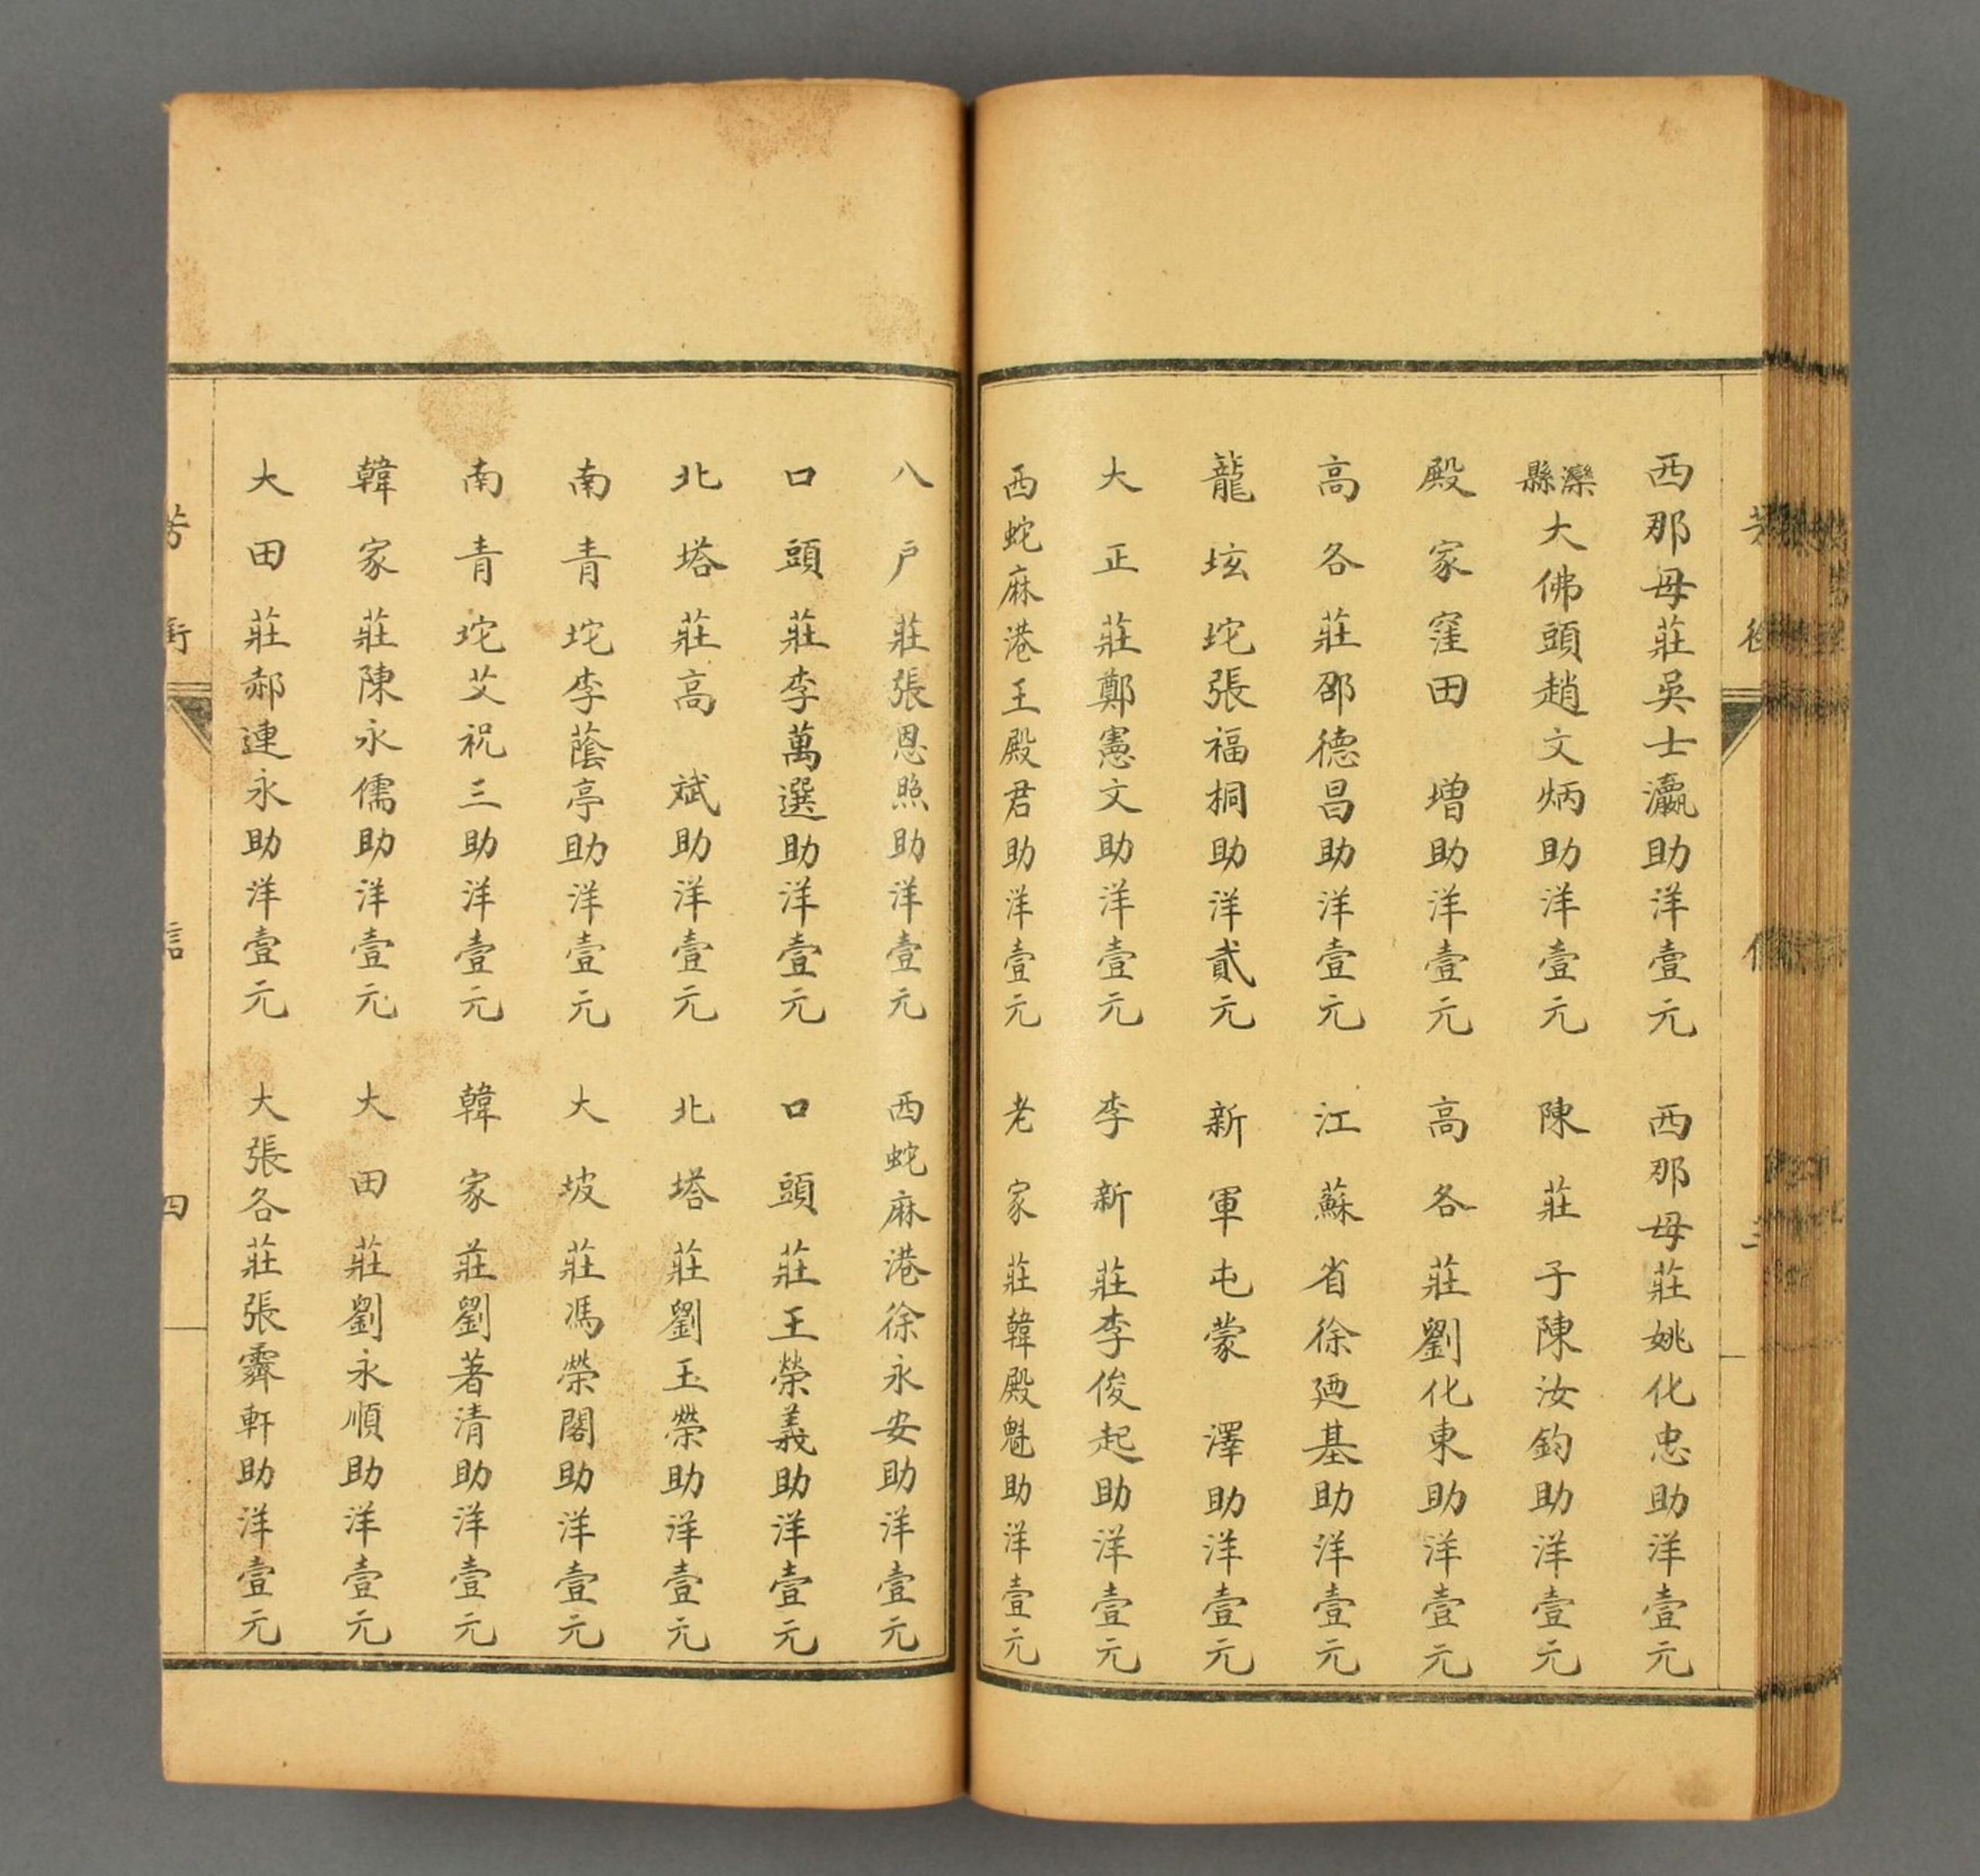 西那母莊吳士瀛助洋壹元 西那母莊姚化忠助洋壹元
灤縣大佛頭趙文炳助洋壹元 陳莊子陳汝鈞助洋壹元
殿家窪田增助洋壹元 高各莊劉化東助洋壹元
高各莊邵德昌助洋壹元 江蘇省徐廼基助洋壹元
龍坨坨張福桐助洋貳元 新軍屯蒙澤助洋壹元
大正莊鄭憲文助洋壹元 李新莊李俊起助洋壹元
西蛇麻港王殿君助洋壹元 老家莊韓殿魁助洋壹元
八戶莊張恩照助洋壹元 西蛇麻港徐永安助洋壹元
口頭莊李萬選助洋壹元 口頭莊王榮義助洋壹元
北塔莊高斌助洋壹元 北塔莊劉玉榮助洋壹元
南青坨李蔭亭助洋壹元 大坡莊馮榮閣助洋壹元
南青坨艾祝三助洋壹元 韓家莊劉著清助洋壹元
韓家莊陳永儒助洋壹元 大田莊劉永順助洋壹元
大田莊郝連永助洋壹元 大張各莊張霽軒助洋壹元
芳銜 信 四